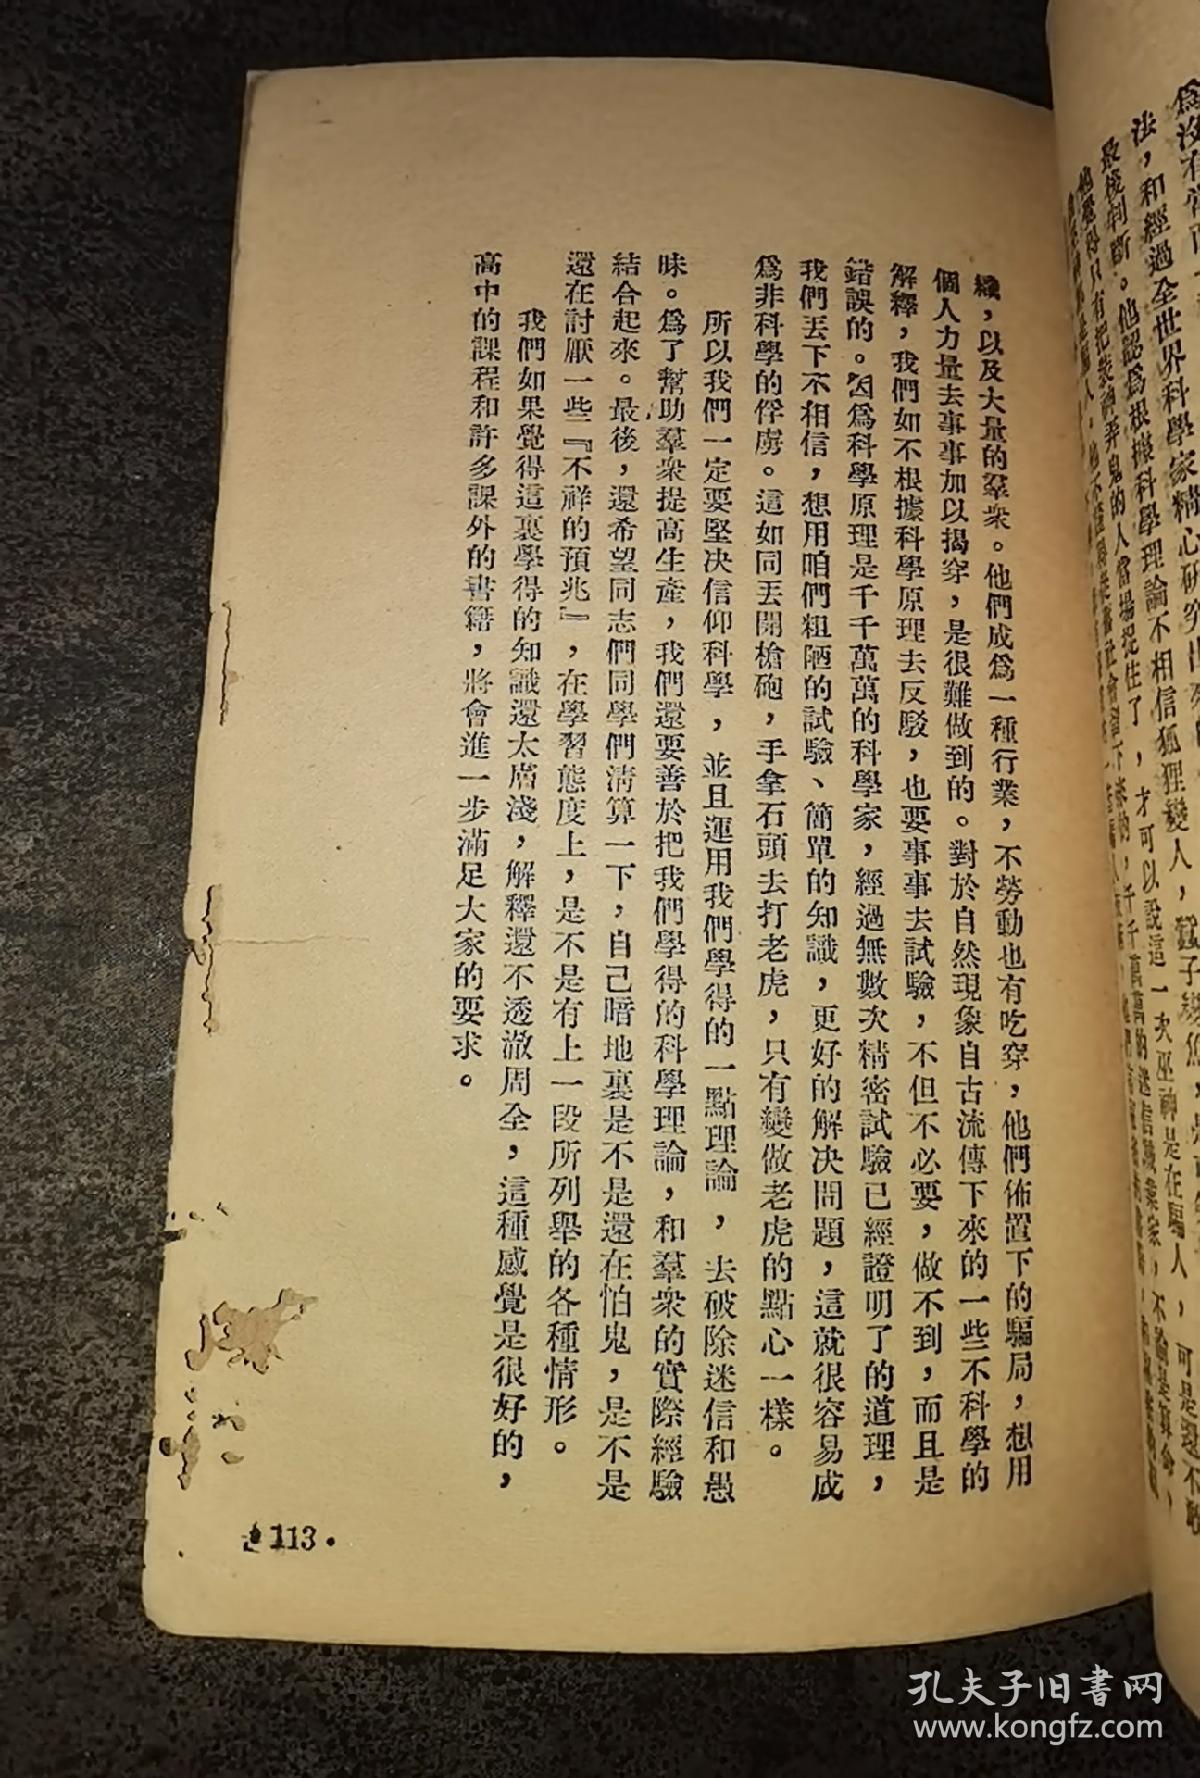 為沒有
法，和經過全世界科學家精心研究出
最後判斷。他認為根據科學理論不相信狐狸變人，
他覺得只有把裝神弄鬼的人當場捉住了，才可以說這一次巫神是在騙人，可是
織，以及大量的羣衆。他們成為一種行業，不勞動也有吃穿，他們佈置下的騙局，想用
個人力量去事事加以揭穿，是很難做到的。對於自然現象自古流傳下來的一些不科學的
解釋，我們如不根據科學原理去反駁，也要事事去試驗，不但不必要，做不到，而且是
錯誤的。因為科學原理是千千萬萬的科學家，經過無數次精密試驗已經證明了的道理，
我們丟下不相信，想用咱們粗陋的試驗、簡單的知識，更好的解決問題，這就很容易成
為非科學的俘虜。這如同丟開槍砲，手拿石頭去打老虎，只有變做老虎的點心一樣。
所以我們一定要堅決信仰科學，並且運用我們學得的一點理論，去破除迷信和愚
昧。為了幫助羣衆提高生產，我們還要善於把我們學得的科學理論，和羣衆的實際經驗
結合起來。最後，還希望同志們同學們清算一下，自己暗地裏是不是還在怕鬼，是不是
還在討厭一些『不祥的預兆』，在學習態度上，是不是有上一段所列舉的各種情形。
我們如果覺得這裏學得的知識還太膚淺，解釋還不透澈周全，這種感覺是很好的，
高中的課程和許多課外的書籍，將會進一步滿足大家的要求。
113·
孔夫子旧书网
www.kongfz.com